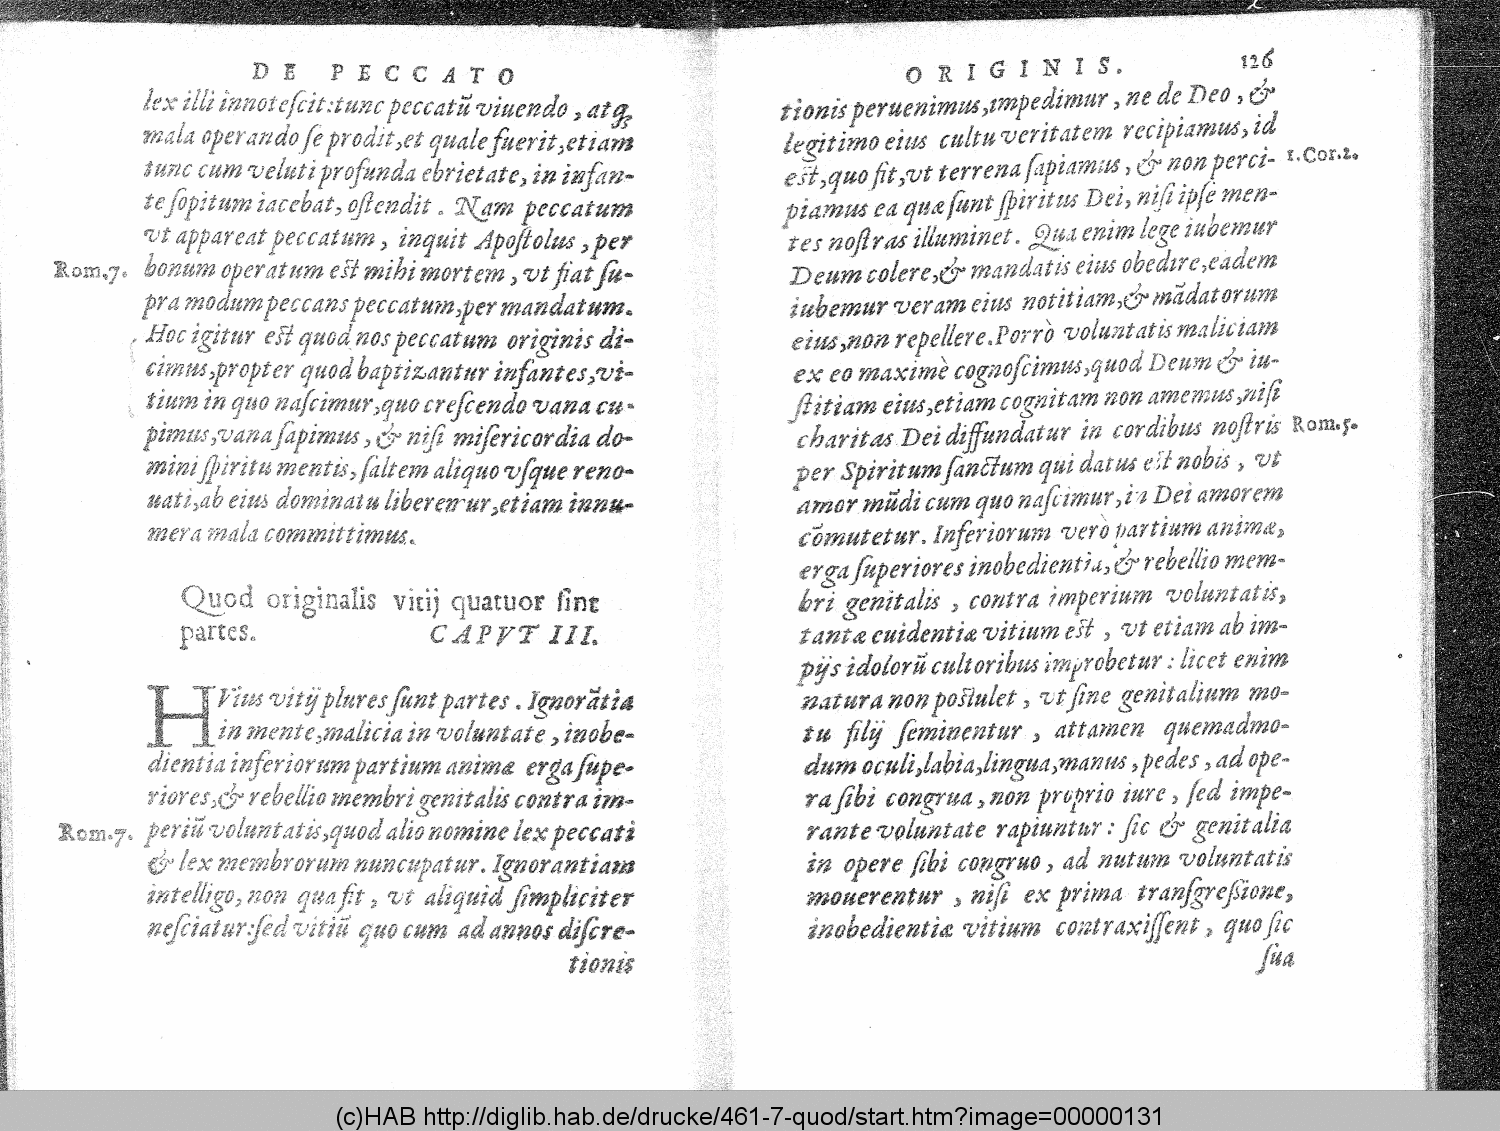 DE PECCATO
lex illi innotescit: tunc peccatū viuendo, atq;
mala operando se prodit, et quale fuerit, etiam
tunc cum veluti profunda ebrietate, in infan-
te sopitum iacebat, ostendit. Nam peccatum
vt appareat peccatum, inquit Apostolus, per
Rom.7. bonum operatum est mihi mortem, vt fiat su-
pra modum peccans peccatum, per mandatum.
Hoc igitur est quod nos peccatum originis di-
cimus, propter quod baptizantur infantes, vi-
tium in quo nascimur, quo crescendo vana cu-
pimus, vana sapimus, & nisi misericordia do-
mini spiritu mentis, saltem aliquo vsque reno-
uati, ab eius dominatu liberemur, etiam innu-
mera mala committimus.
Quod originalis vitij quatuor sint
partes. CAPVT III.
HVius vitij plures sunt partes. Ignorātia
in mente, malicia in voluntate, inobe-
dientia inferiorum partium animæ erga supe-
riores, & rebellio membri genitalis contra im-
Rom.7. periū voluntatis, quod alio nomine lex peccati
& lex membrorum nuncupatur. Ignorantiam
intelligo, non qua fit, vt aliquid simpliciter
nesciatur: sed vitiū quo cum ad annos discre-
tionis
ORIGINIS. 126
tionis peruenimus, impedimur, ne de Deo, &
legitimo eius cultu veritatem recipiamus, id
est, quo fit, vt terrena sapiamus, & non perci- 1.Cor.2.
piamus ea quæ sunt spiritus Dei, nisi ipse men-
tes nostras illuminet. Qua enim lege iubemur
Deum colere, & mandatis eius obedire, eadem
iubemur veram eius notitiam, & mādatorum
eius, non repellere. Porrò voluntatis maliciam
ex eo maximè cognoscimus, quod Deum & iu-
stitiam eius, etiam cognitam non amemus, nisi
charitas Dei diffundatur in cordibus nostris Rom.5.
per Spiritum sanctum qui datus est nobis, vt
amor mūdi cum quo nascimur, in Dei amorem
cōmutetur. Inferiorum verò partium animæ,
erga superiores inobedientia, & rebellio mem-
bri genitalis, contra imperium voluntatis,
tantæ euidentiæ vitium est, vt etiam ab im-
pijs idolorū cultoribus improbetur: licet enim
natura non postulet, vt sine genitalium mo-
tu filij seminentur, attamen quemadmo-
dum oculi, labia, lingua, manus, pedes, ad ope-
ra sibi congrua, non proprio iure, sed impe-
rante voluntate rapiuntur: sic & genitalia
in opere sibi congruo, ad nutum voluntatis
mouerentur, nisi ex prima transgressione,
inobedientiæ vitium contraxissent, quo sic
sua
(c)HAB http://diglib.hab.de/drucke/461-7-quod/start.htm?image=00000131